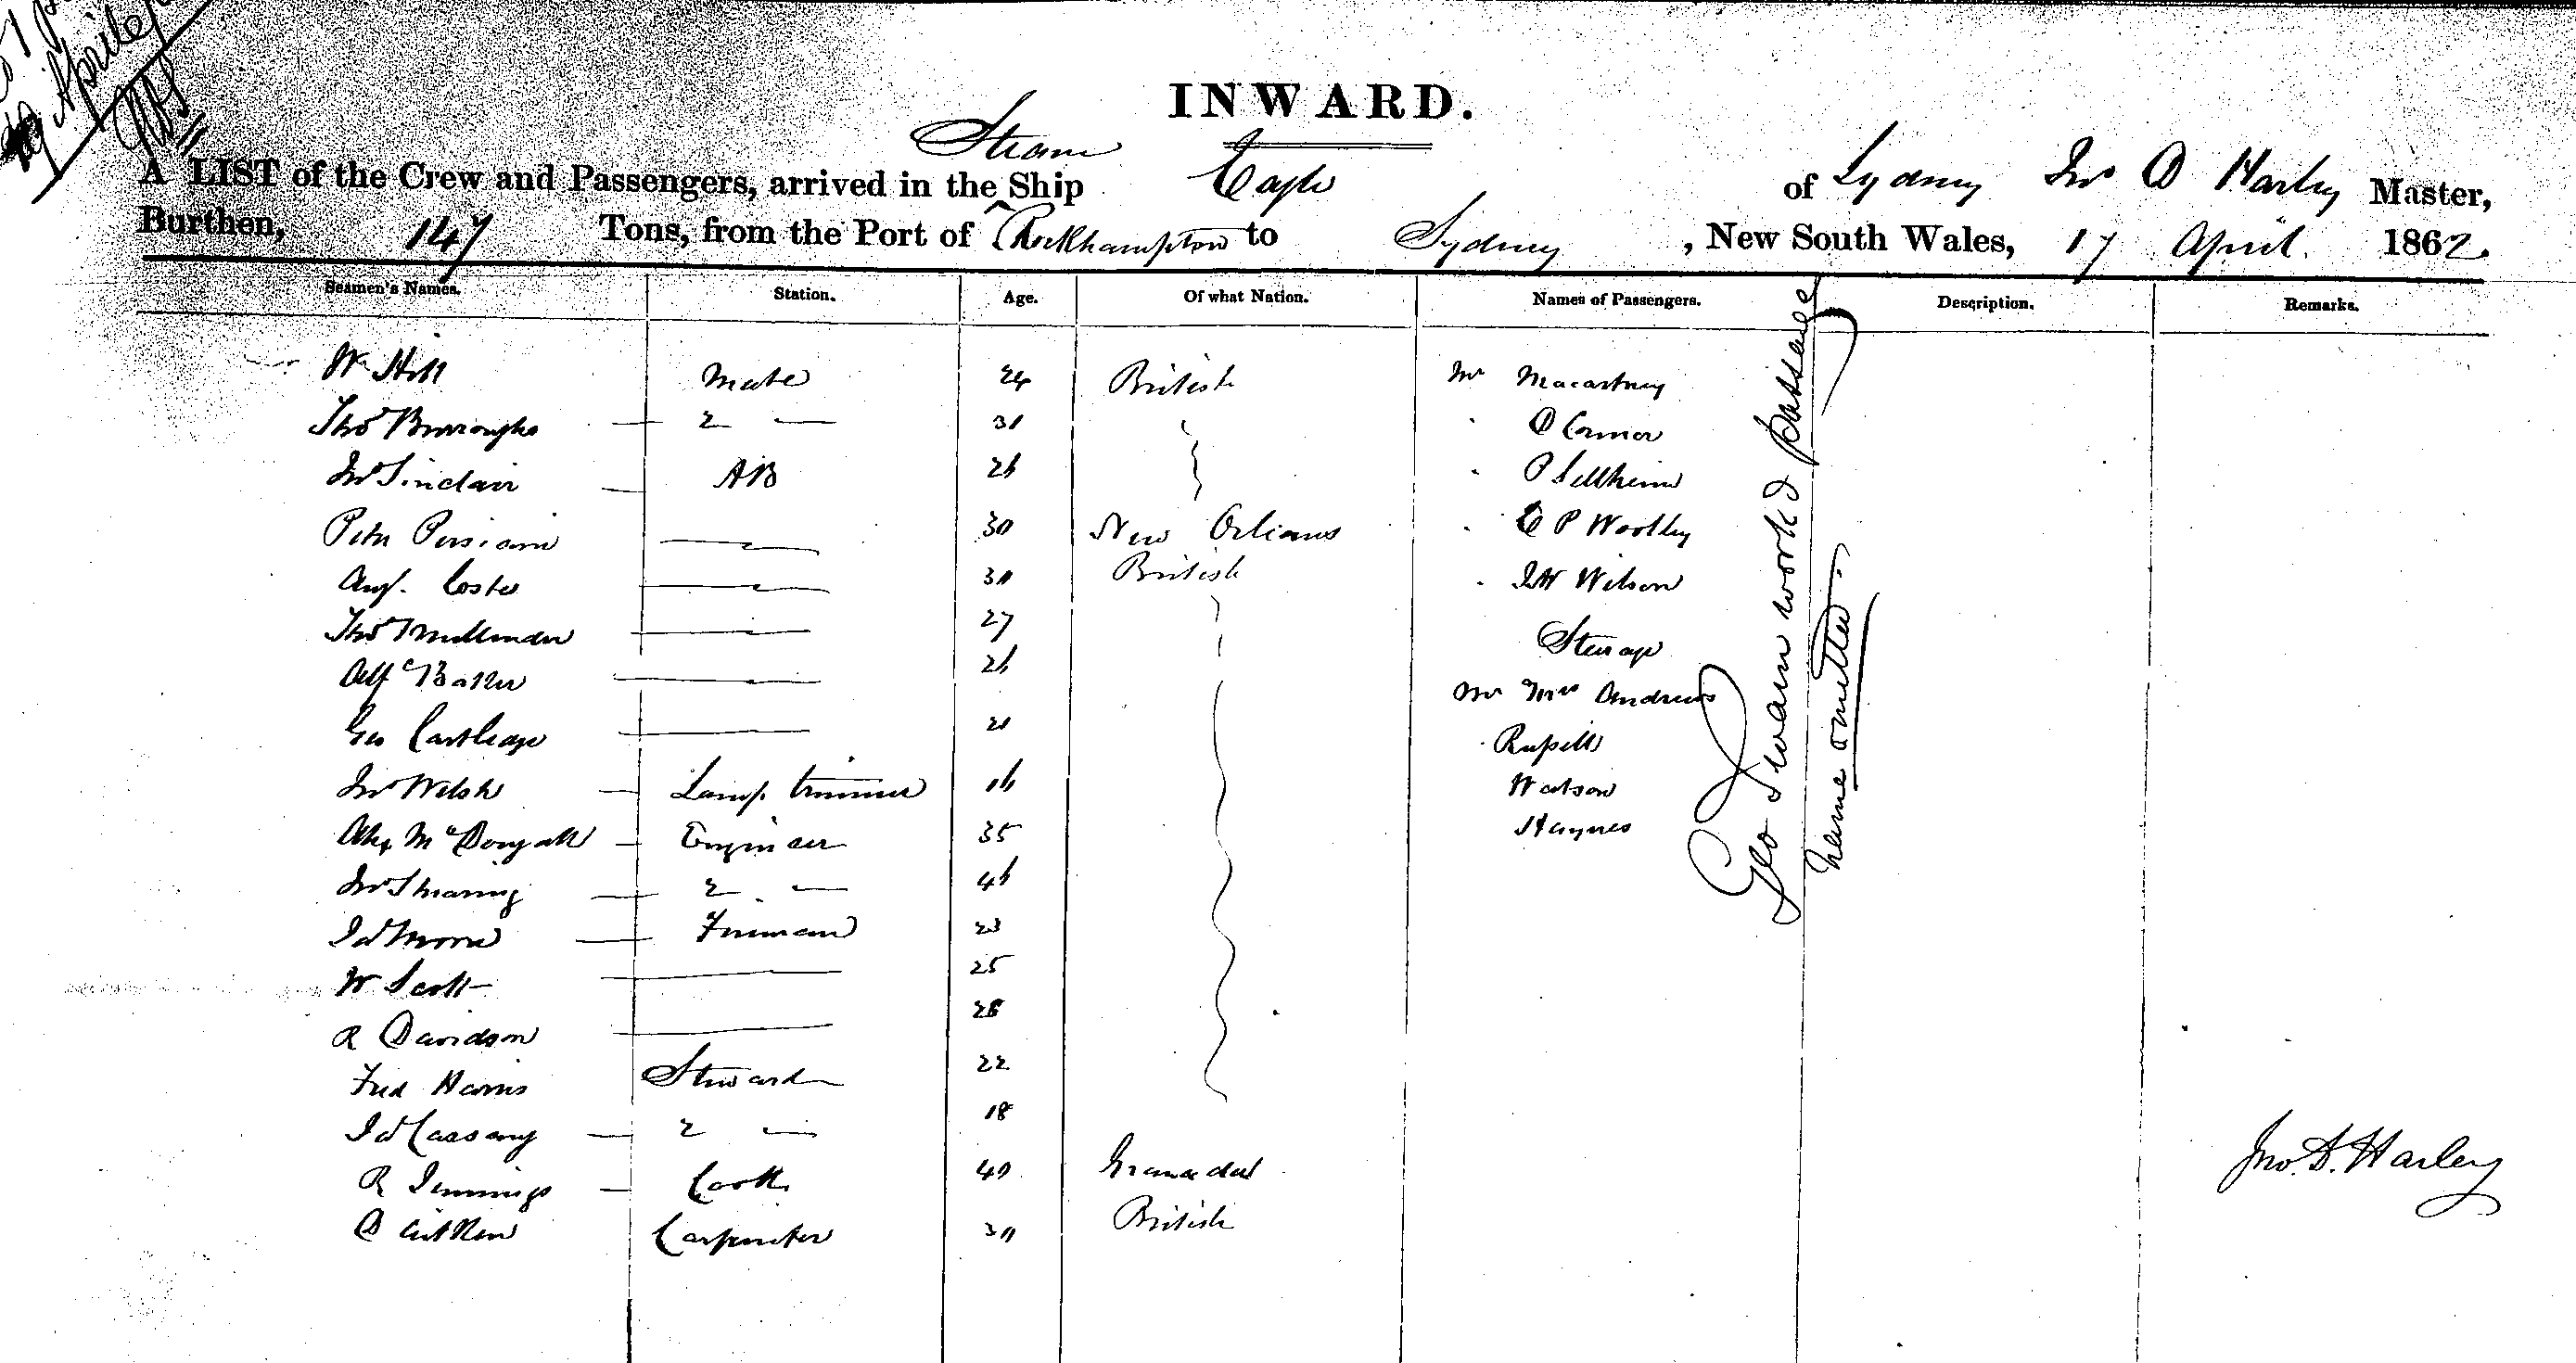 April
INWARD.
Steam
A LIST of the Crew and Passengers, arrived in the Ship Eagle of Sydney Jno D Harley Master,
Burthen, 147 Tons, from the Port of Rockhampton to Sydney, New South Wales, 17 April 1862.
Seamen's Names. Station. Age. Of what Nation. Names of Passengers. Description. Remarks.
W Hill Mate 24 British Mr Macartney
Thos Burroughs — 2 — 31 " O Connor
Jno Sinclair — AB 26 " P Sellheim
Peter — 30 New Orleans " P
Augs. Coster — 30 British " J W Wilson
Thos — 27 Steerage
Alf Baker — 26 Mr Mrs Andrews
Geo — 21 Russell
Jno Welsh — Lamp trimmer 16 Watson
Alex McDougall — Engineer 35 Haynes
Jno Shearing — 2 — 46
Moore — Fireman 23
W Scott — 25
R Davidson — 28
Fred Harris Steward 22
— 2 — 18
R Jennings — Cook 40
D Aitken Carpenter 30 British
Geo Swain work'd passage
name omitted.
Jno. D. Harley